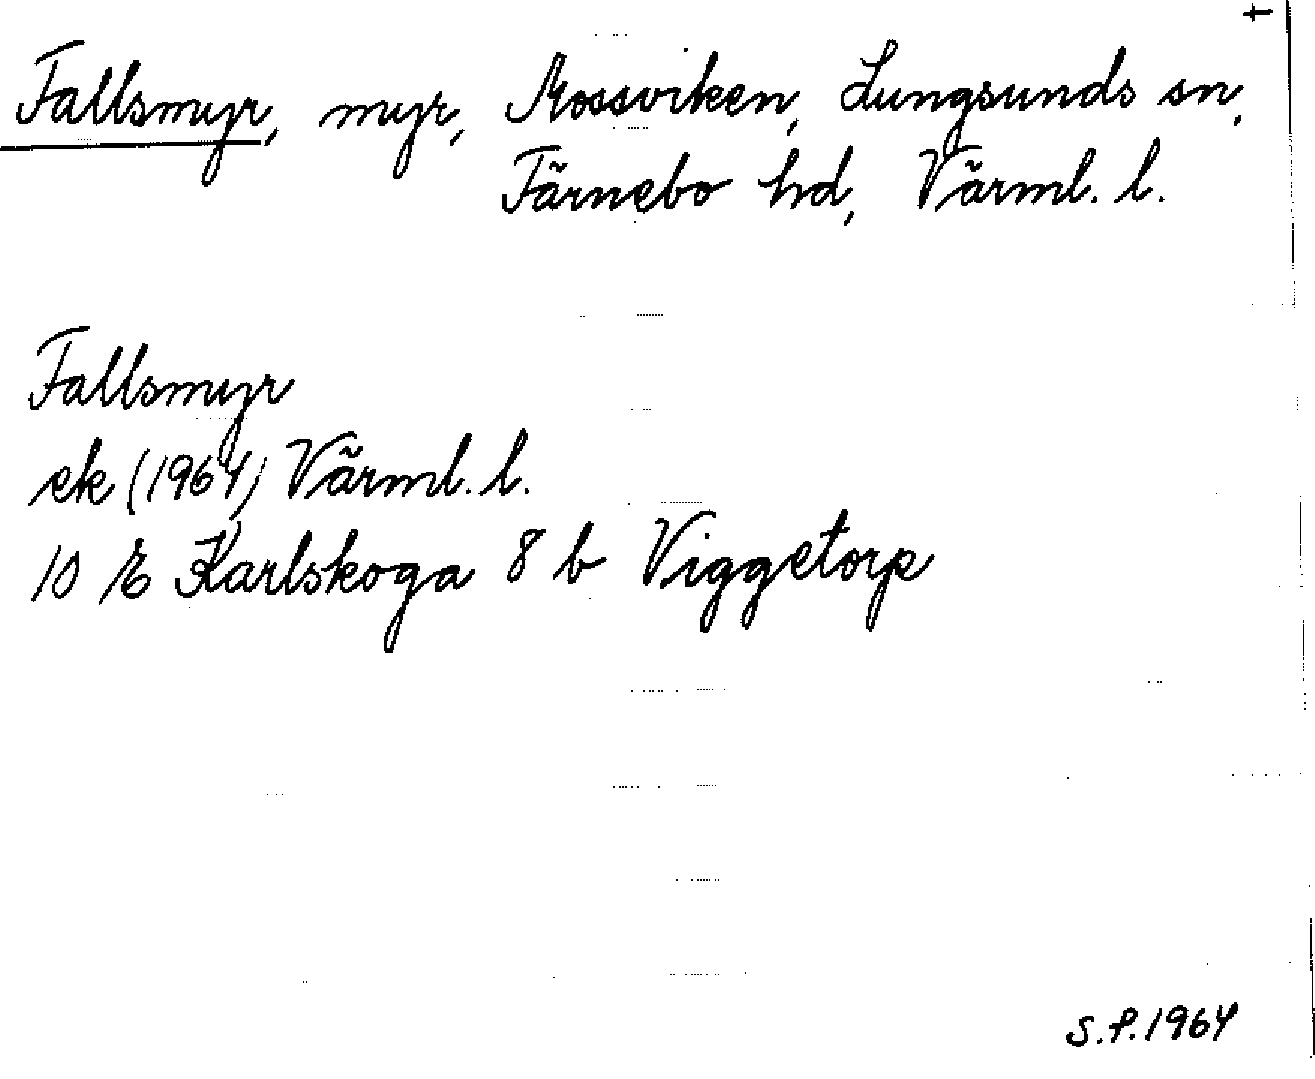 t
Fallsmyr, myr, Mossviken, Lungsunds sn,
Färnebo hd, Värml. l.
Fallsmyr
ek (1964) Värml. l.
10 E Karlskoga 8 b Viggetorp
S.P.1964